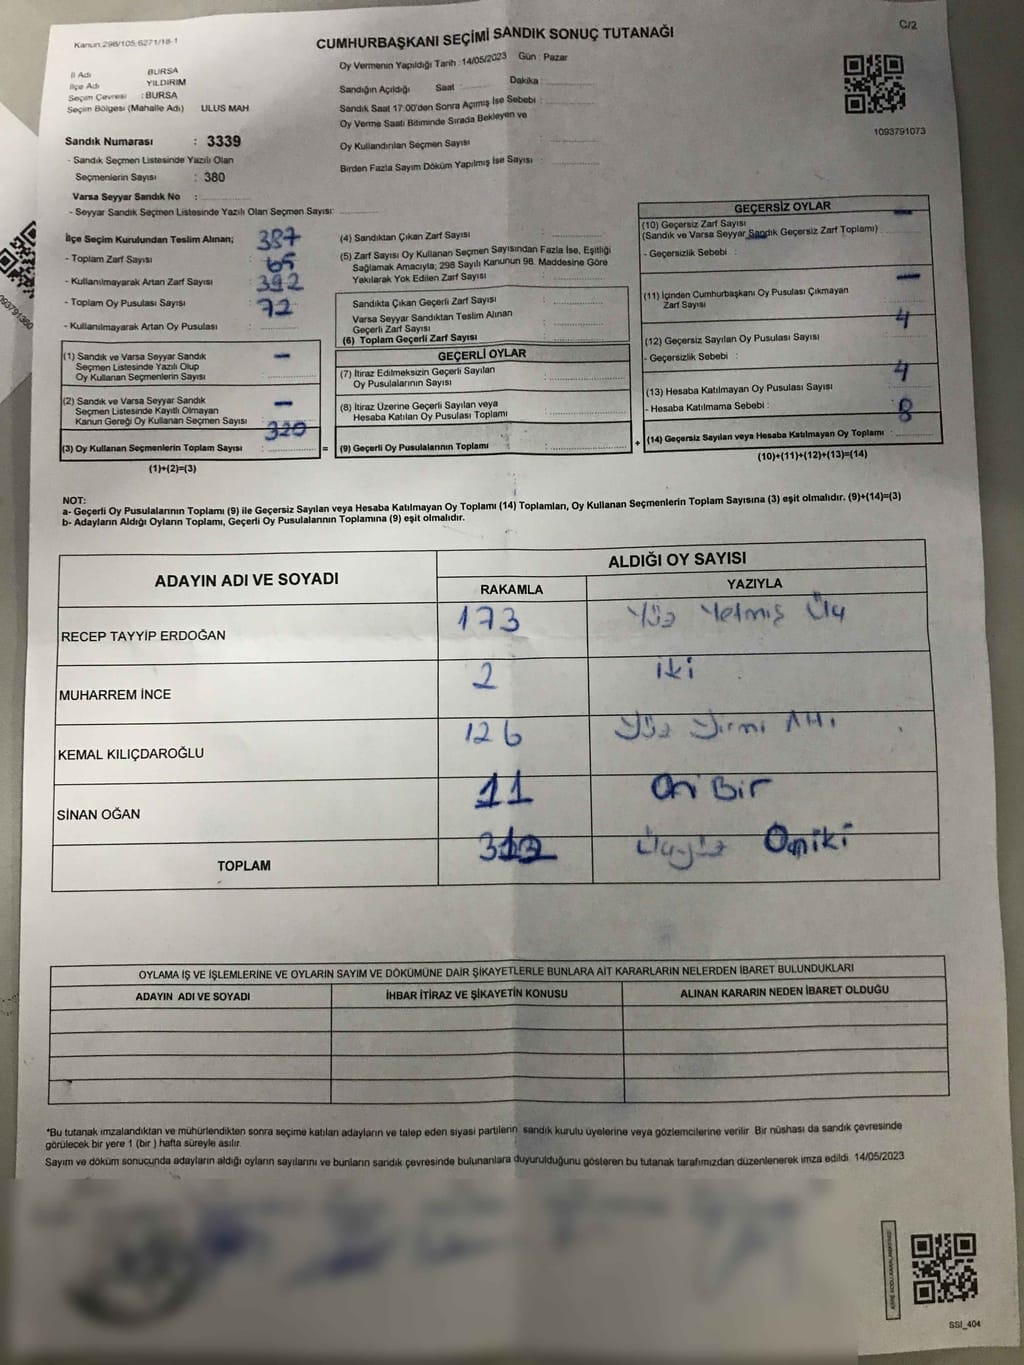 Kanun:298/105,6271/18-1
C/2
CUMHURBAŞKANI SEÇİMİ SANDIK SONUÇ TUTANAĞI
İl Adı BURSA
İlçe Adı YILDIRIM
Seçim Çevresi : BURSA
Seçim Bölgesi (Mahalle Adı) ULUS MAH
Sandık Numarası : 3339
- Sandık Seçmen Listesinde Yazılı Olan
Seçmenlerin Sayısı : 380
Varsa Seyyar Sandık No :
- Seyyar Sandık Seçmen Listesinde Yazılı Olan Seçmen Sayısı:
Oy Vermenin Yapıldığı Tarih : 14/05/2023 Gün : Pazar
Sandığın Açıldığı Saat : Dakika :
Sandık Saat 17:00'den Sonra Açımış İse Sebebi :
Oy Verme Saati Bitiminde Sırada Bekleyen ve
Oy Kullandırılan Seçmen Sayısı :
Birden Fazla Sayım Döküm Yapılmış İse Sayısı :
1093791073
İlçe Seçim Kurulundan Teslim Alınan; 387
- Toplam Zarf Sayısı 65
- Kullanılmayarak Artan Zarf Sayısı 392
- Toplam Oy Pusulası Sayısı 72
- Kullanılmayarak Artan Oy Pusulası :
(1) Sandık ve Varsa Seyyar Sandık –
Seçmen Listesinde Yazılı Olup
Oy Kullanan Seçmenlerin Sayısı
(2) Sandık ve Varsa Seyyar Sandık –
Seçmen Listesinde Kayıtlı Olmayan
Kanun Gereği Oy Kullanan Seçmen Sayısı 320
(3) Oy Kullanan Seçmenlerin Toplam Sayısı : =
(1)+(2)=(3)
(4) Sandıktan Çıkan Zarf Sayısı :
(5) Zarf Sayısı Oy Kullanan Seçmen Sayısından Fazla İse, Eşitliği
Sağlamak Amacıyla; 298 Sayılı Kanunun 98. Maddesine Göre
Yakılarak Yok Edilen Zarf Sayısı :
Sandıkta Çıkan Geçerli Zarf Sayısı :
Varsa Seyyar Sandıktan Teslim Alınan
Geçerli Zarf Sayısı :
(6) Toplam Geçerli Zarf Sayısı :
GEÇERLİ OYLAR
(7) İtiraz Edilmeksizin Geçerli Sayılan
Oy Pusulalarının Sayısı :
(8) İtiraz Üzerine Geçerli Sayılan veya
Hesaba Katılan Oy Pusulası Toplamı :
(9) Geçerli Oy Pusulalarının Toplamı : +
GEÇERSİZ OYLAR
(10) Geçersiz Zarf Sayısı –
(Sandık ve Varsa Seyyar Sandık Geçersiz Zarf Toplamı) :
- Geçersizlik Sebebi :
–
(11) İçinden Cumhurbaşkanı Oy Pusulası Çıkmayan
Zarf Sayısı :
4
(12) Geçersiz Sayılan Oy Pusulası Sayısı :
- Geçersizlik Sebebi :
4
(13) Hesaba Katılmayan Oy Pusulası Sayısı :
- Hesaba Katılmama Sebebi : 8
(14) Geçersiz Sayılan veya Hesaba Katılmayan Oy Toplamı :
(10)+(11)+(12)+(13)=(14)
NOT:
a- Geçerli Oy Pusulalarının Toplamı (9) ile Geçersiz Sayılan veya Hesaba Katılmayan Oy Toplamı (14) Toplamları, Oy Kullanan Seçmenlerin Toplam Sayısına (3) eşit olmalıdır. (9)+(14)=(3)
b- Adayların Aldığı Oyların Toplamı, Geçerli Oy Pusulalarının Toplamına (9) eşit olmalıdır.
ADAYIN ADI VE SOYADI
ALDIĞI OY SAYISI
RAKAMLA YAZIYLA
RECEP TAYYİP ERDOĞAN 173 Yüz Yetmiş Üç
MUHARREM İNCE 2 iki
KEMAL KILIÇDAROĞLU 126 Yüz Yirmi Altı
SİNAN OĞAN 11 On Bir
TOPLAM 312 Üçyüz Oniki
OYLAMA İŞ VE İŞLEMLERİNE VE OYLARIN SAYIM VE DÖKÜMÜNE DAİR ŞİKAYETLERLE BUNLARA AİT KARARLARIN NELERDEN İBARET BULUNDUKLARI
ADAYIN ADI VE SOYADI İHBAR İTİRAZ VE ŞİKAYETİN KONUSU ALINAN KARARIN NEDEN İBARET OLDUĞU
*Bu tutanak imzalandıktan ve mühürlendikten sonra seçime katılan adayların ve talep eden siyasi partilerin sandık kurulu üyelerine veya gözlemcilerine verilir. Bir nüshası da sandık çevresinde
görülecek bir yere 1 (bir ) hafta süreyle asılır.
Sayım ve döküm sonucunda adayların aldığı oyların sayılarını ve bunların sandık çevresinde bulunanlara duyurulduğunu gösteren bu tutanak tarafımızdan düzenlenerek imza edildi. 14/05/2023
SSI_404